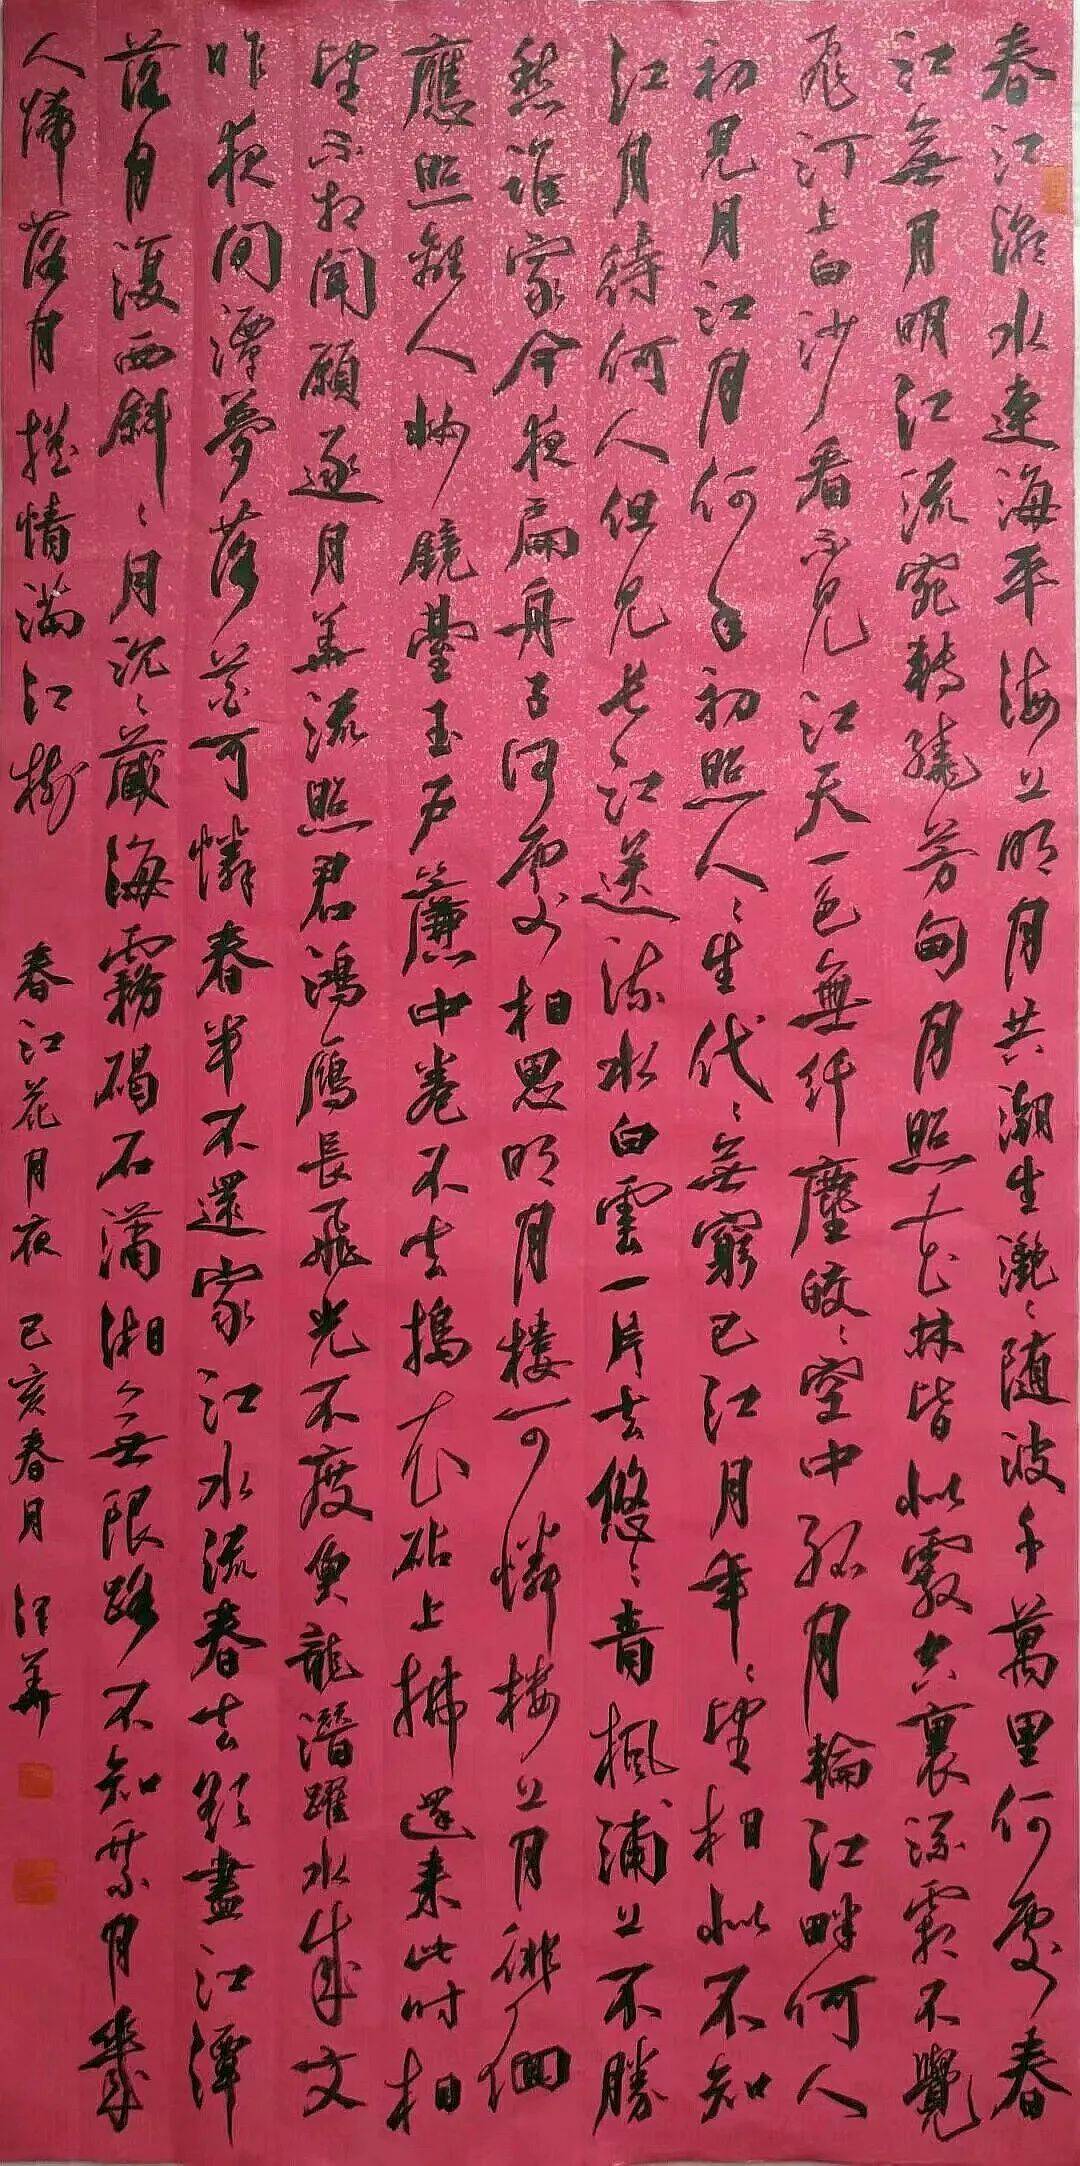 春江潮水連海平海上明月共潮生灧〻随波千萬里何處春
江無月明江流宛轉繞芳甸月照花林皆似霰空裏流霜不覺
飛汀上白沙看不見江天一色無纤塵皎〻空中孤月輪江畔何人
初見月江月何年初照人〻生代〻無窮已江月年〻望相似不知
江月待何人但見長江送流水白雲一片去悠〻青楓浦上不勝
愁誰家今夜扁舟子何處相思明月楼可憐楼上月徘徊
應照離人妝鏡臺玉户簾中卷不去搗衣砧上拂還来此时相
望不相聞願逐月華流照君鴻雁長飛光不度魚龍潛躍水成文
昨夜間潭夢落花可憐春半不還家江水流春去欲盡江潭
落月復西斜〻月沉〻藏海霧碣石瀟湘無限路不知乘月幾
人歸落月摇情滿江樹 春江花月夜 己亥春月 華